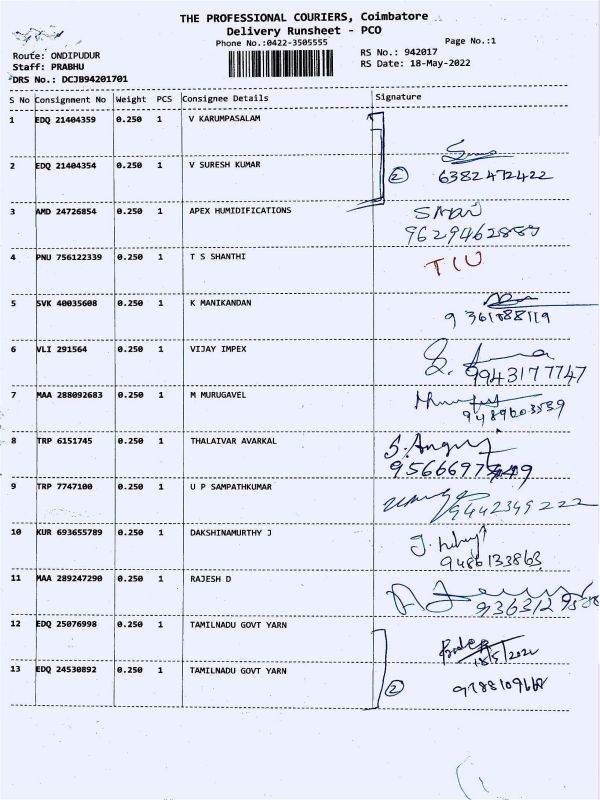 THE PROFESSIONAL COURIERS, Coimbatore
Delivery Runsheet - PCO
Phone No.:0422-3505555
Page No.:1
Route: ONDIPUDUR
RS No.: 942017
Staff: PRABHU
RS Date: 18-May-2022
DRS No.: DCJB94201701
S No Consignment No Weight PCS Consignee Details Signature
1 EDQ 21404359 0.250 1 V KARUMPASALAM
2 EDQ 21404354 0.250 1 V SURESH KUMAR
2 6382472422
3 AMD 24726854 0.250 1 APEX HUMIDIFICATIONS
9629462887
4 PNU 756122339 0.250 1 T S SHANTHI
5 SVK 40035608 0.250 1 K MANIKANDAN
9361888119
6 VLI 291564 0.250 1 VIJAY IMPEX
9943177747
7 MAA 288092683 0.250 1 M MURUGAVEL
9489603559
8 TRP 6151745 0.250 1 THALAIVAR AVARKAL
9 TRP 7747100 0.250 1 U P SAMPATHKUMAR
9442349222
10 KUR 693655789 0.250 1 DAKSHINAMURTHY J
9486133863
11 MAA 289247290 0.250 1 RAJESH D
12 EDQ 25076998 0.250 1 TAMILNADU GOVT YARN
18/5/2022
13 EDQ 24530892 0.250 1 TAMILNADU GOVT YARN
2